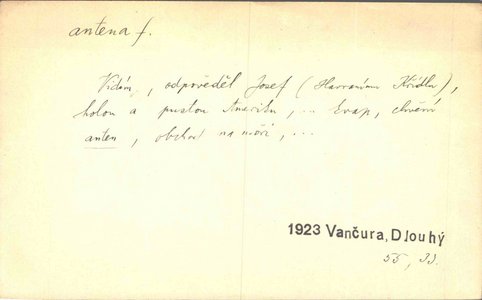 antena f.
Vidím, odpověděl Josef (Havranímu Křídlu),
holou a pustou Ameriku, ... chvění
anten, obchod na moři, ...
1923 Vančura, Dlouhý
55,